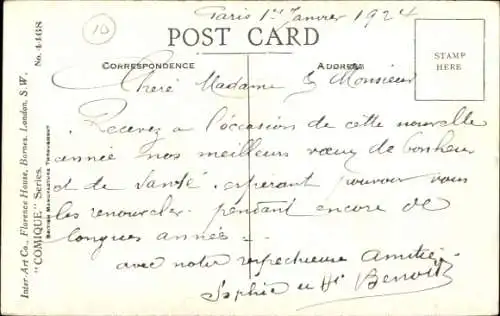 Paris 1er Janvier 1924
10
POST CARD
CORRESPONDENCE
ADDRESS
STAMP
HERE
Cheré Madame & Monsieur
Recevez a l'occasion de cette nouvelle
année nos meilleurs vœux de bonheur
et de Santé. espérant pouvoir vous
les renouveler. pendant encore de
longues années –
avec notre respectueuse Amitié
Sophie et Benoit
Inter-Art Co., Florence House, Barnes, London, S.W.
"COMIQUE" Series.
No. 4468
BRITISH MANUFACTURE THROUGHOUT